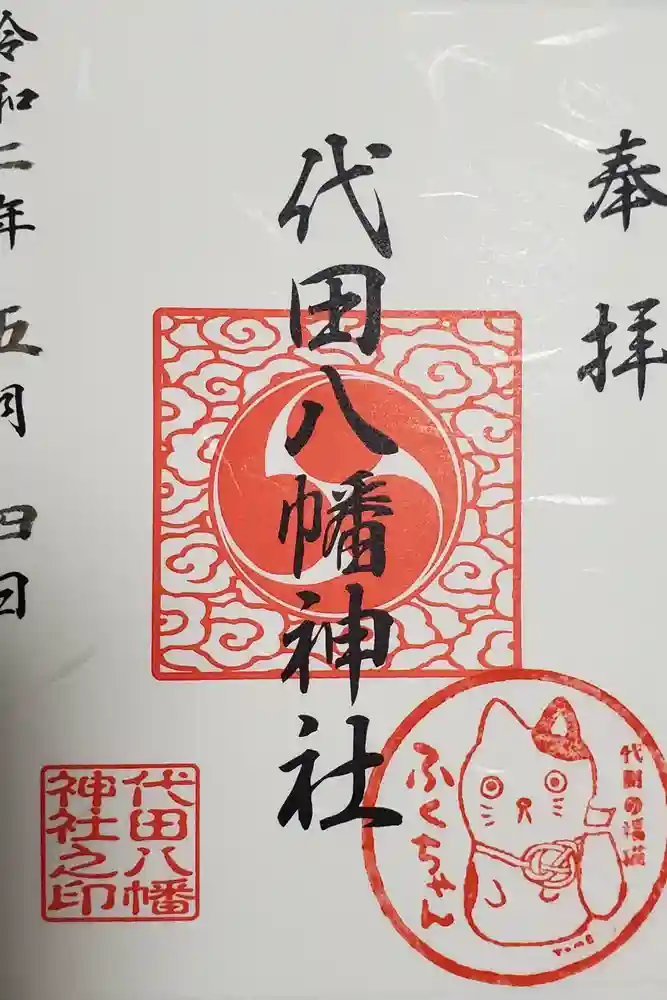 奉拝
代田八幡神社
令和二年五月四日
代田八幡
神社之印
代田の福猫
ふくちゃん